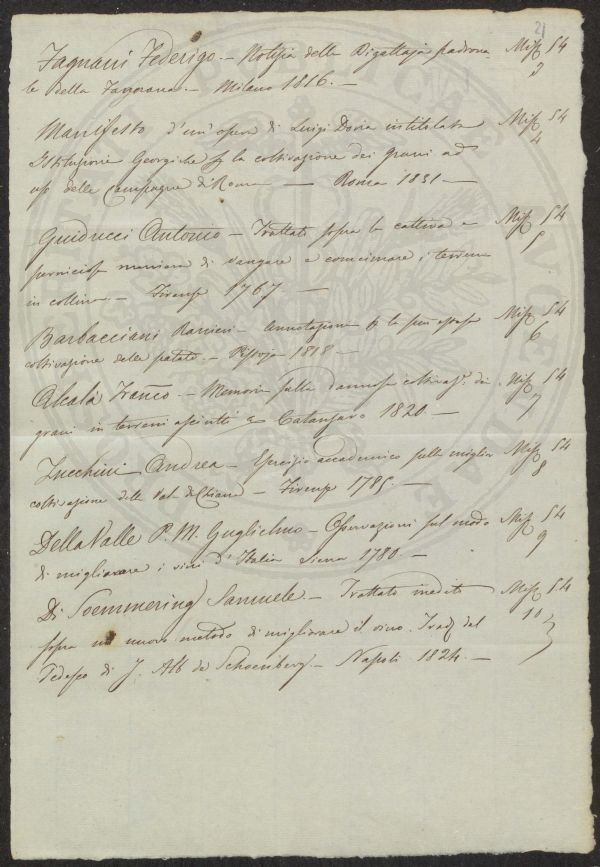 21
Fagnani Federigo. — Notizia della Bigattaja padrona- Misc 54
le della Fagnana. — Milano 1816. — 3
Manifesto d'un' opera di Luigi Doria intitolata Misc 54
Istituzioni Georgiche p la coltivazione dei grani ad 4
uso delle Campagne di Roma — Roma 1831 —
Guiducci Antonio — Trattato sopra la cattiva e Misc 54
perniciosa maniera di vangare e concimare i terreni 5
in collina — Firenze 1767. —
Barbacciani Ranieri — Annotazioni la più estesa Misc 54
coltivazione delle patate. — Pistoja 1818 — 6
Alcalà Franco. — Memoria sulla dannosa coltivaz. di Misc 54
grani in terreni asciutti Catanzaro 1820 — 7
Zucchini Andrea — Esercizio accademico sulla miglior Misc 54
coltivazione della Val di Chiana — Firenze 1785. — 8
Della Valle P. M. Guglielmo — Osservazioni sul modo Misc 54
di migliorare i vini d'Italia Siena 1780 — 9
Di Soemmering Samuele. — Trattato inedito Misc 54
sopra un nuovo metodo di migliorare il vino. Trad dal 10
Tedesco di J. Alb de Schoenberg. — Napoli 1824. —